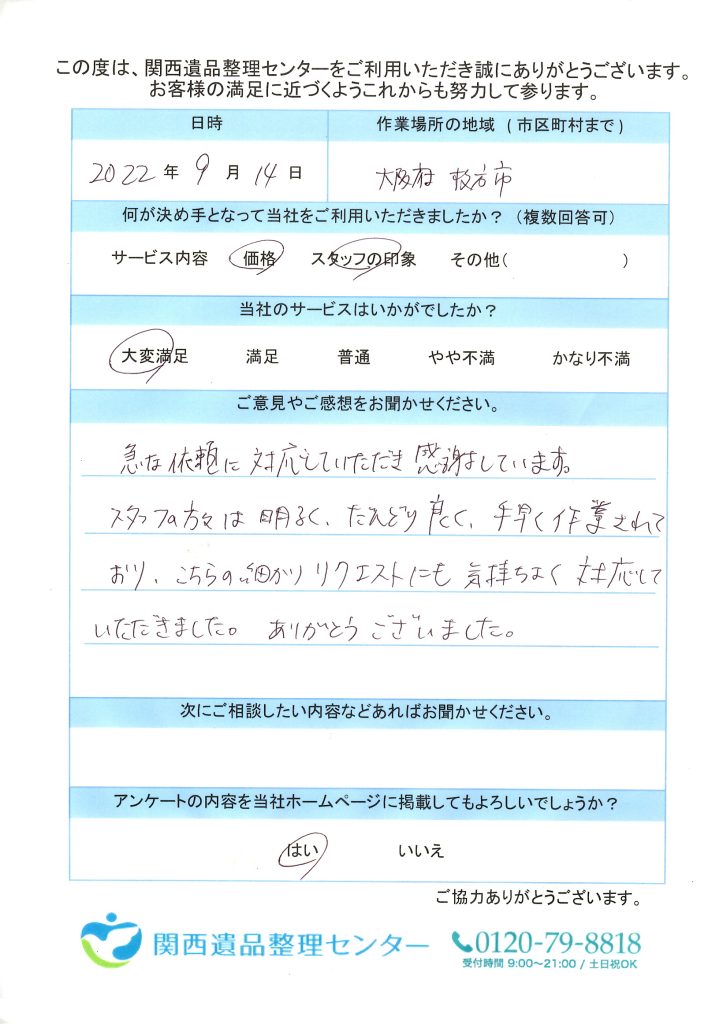 この度は、関西遺品整理センターをご利用いただき誠にありがとうございます。
お客様の満足に近づくようこれからも努力して参ります。
日時
作業場所の地域 (市区町村まで)
2022 年 9 月 14 日
大阪府 枚方市
何が決め手となって当社をご利用いただきましたか? (複数回答可)
サービス内容 価格 スタッフの印象 その他( )
当社のサービスはいかがでしたか?
大変満足 満足 普通 やや不満 かなり不満
ご意見やご感想をお聞かせください。
急な依頼に対応していただき感謝しています。
スタッフの方々は明るく、だんどり良く、手早く作業されて
おり、こちらの細かいリクエストにも気持ちよく対応して
いただきました。ありがとうございました。
次にご相談したい内容などあればお聞かせください。
アンケートの内容を当社ホームページに掲載してもよろしいでしょうか?
はい いいえ
ご協力ありがとうございます。
関西遺品整理センター
0120-79-8818
受付時間 9:00~21:00 / 土日祝OK